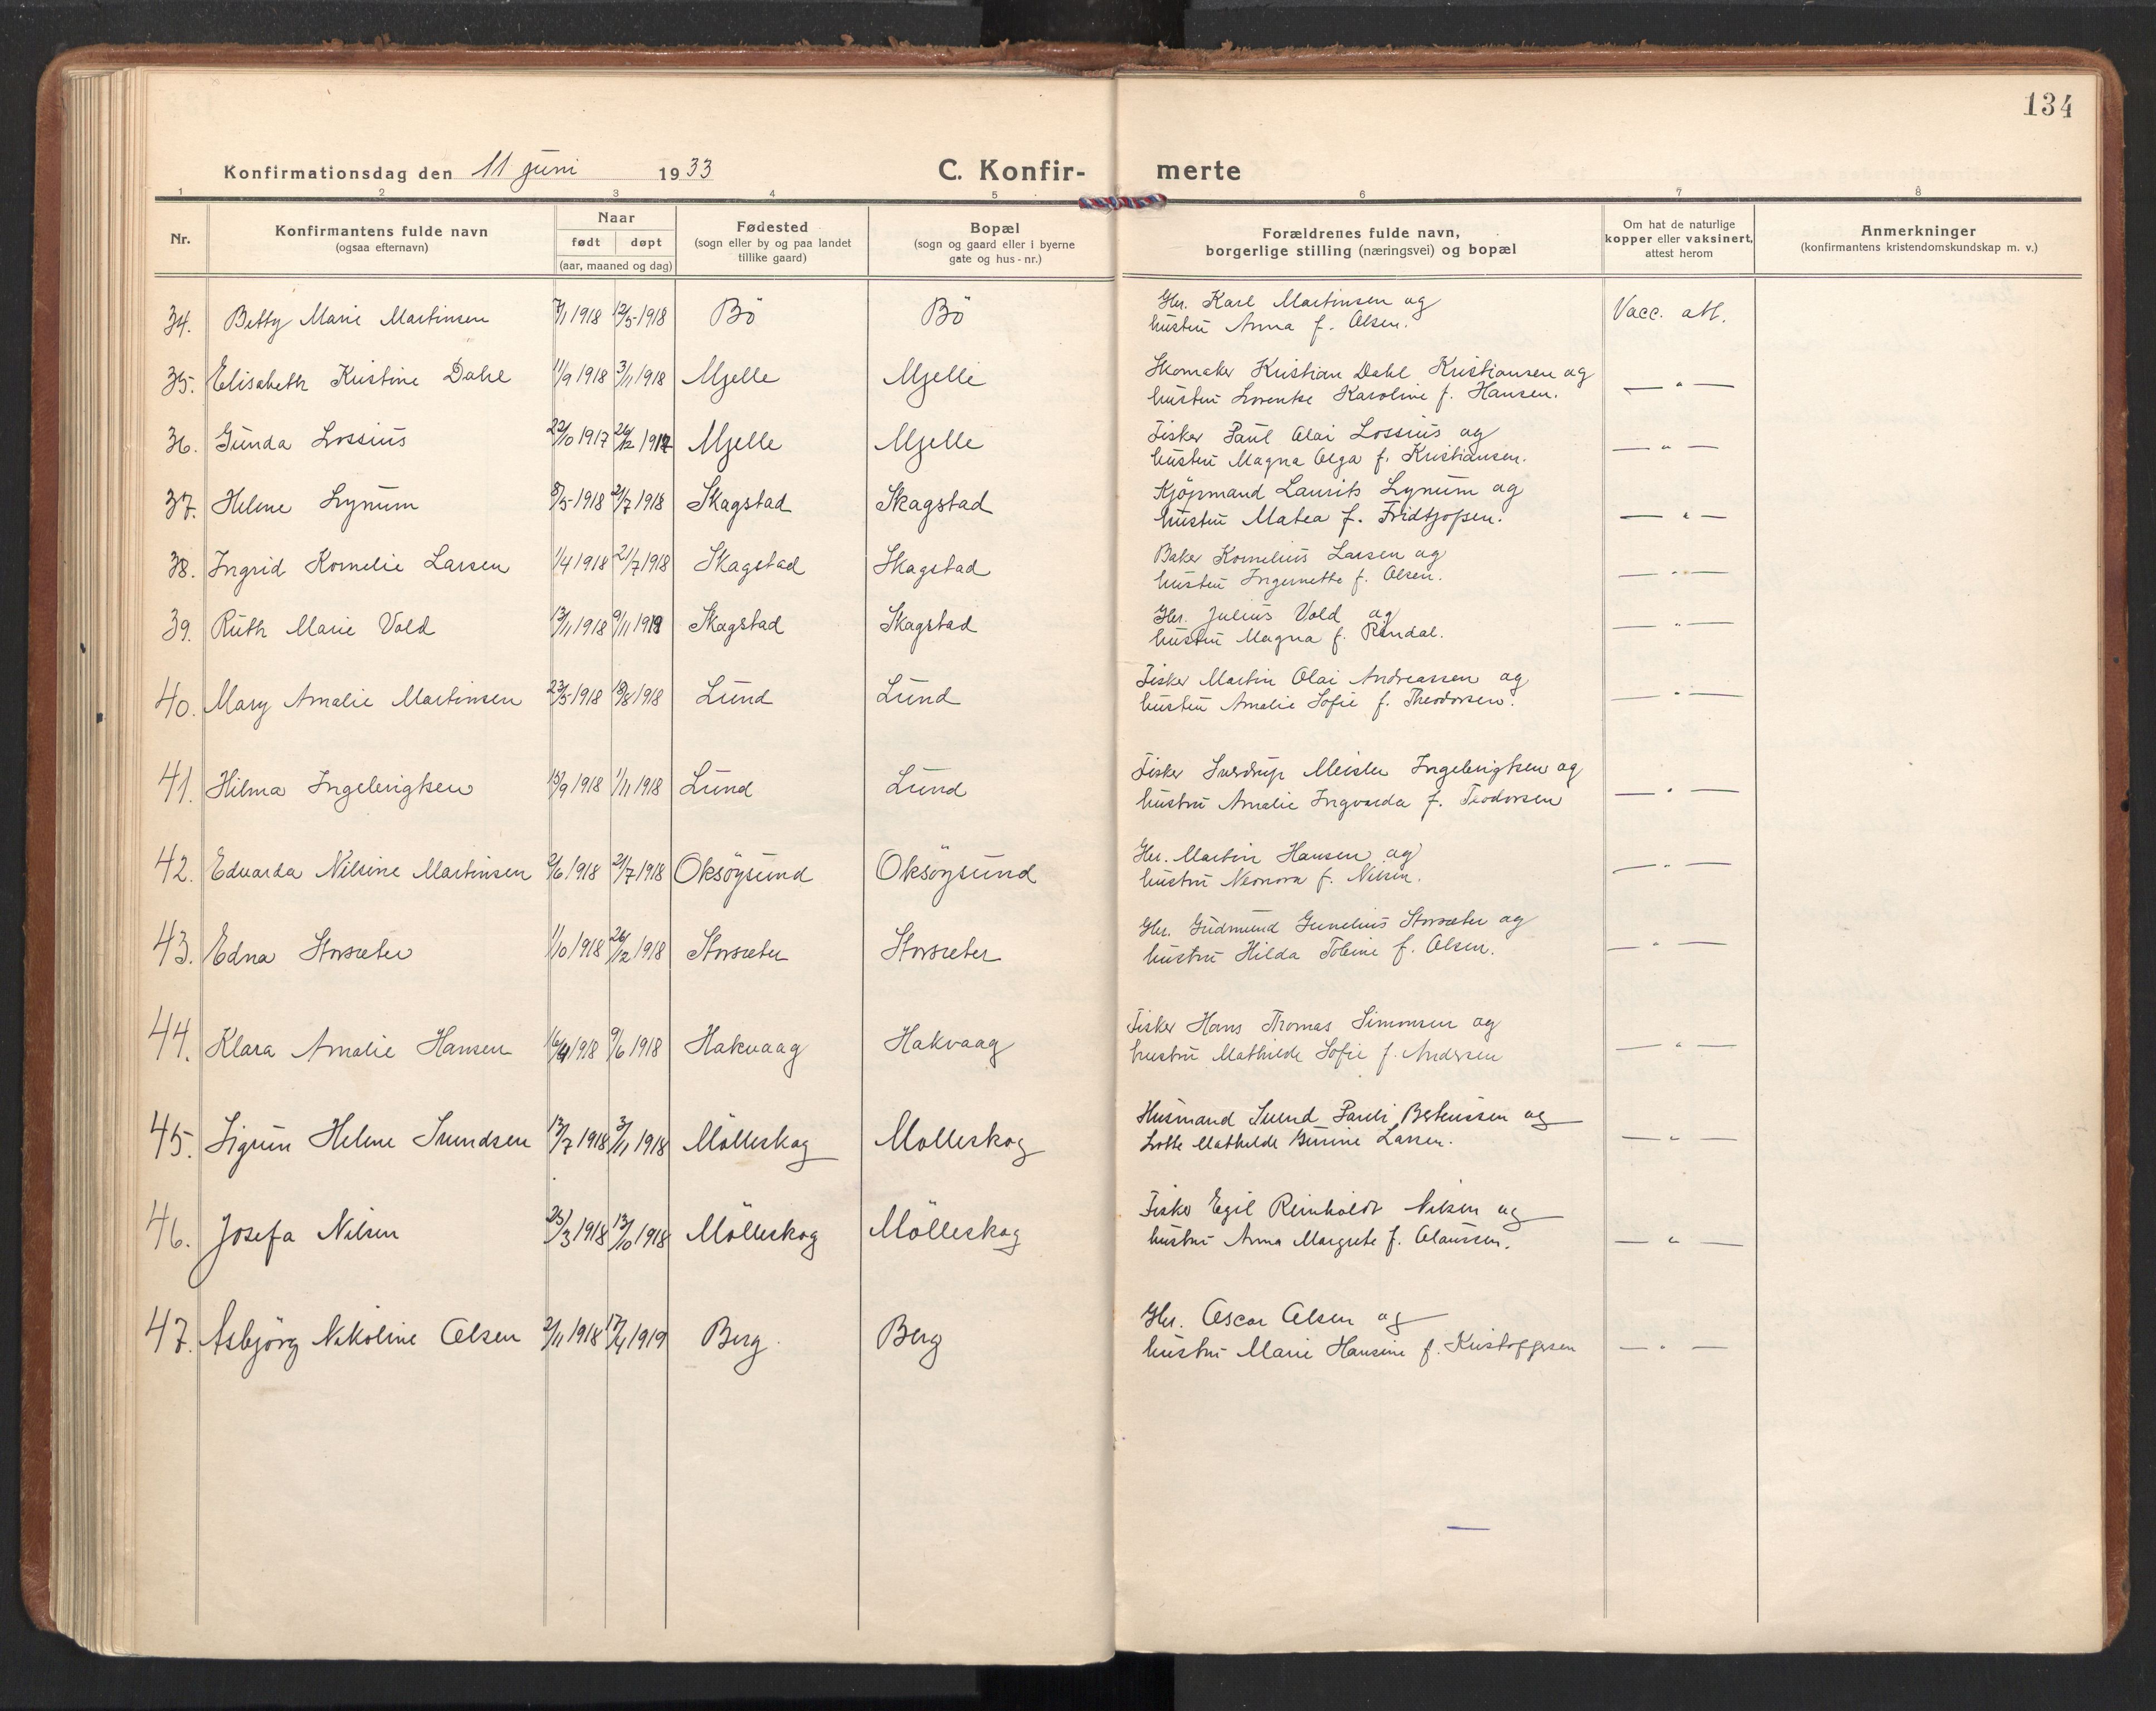 134
Konfirmationsdag den 11 juni 1933
C. Konfir- merte
1 2 3 4 5 6 7 8
Nr.
Konfirmantens fulde navn
(ogsaa efternavn)
Naar
født døpt
(aar, maaned og dag)
Fødested
(sogn eller by og paa landet
tillike gaard)
Bopæl
(sogn og gaard eller i byerne
gate og hus-nr.)
Forældrenes fulde navn,
borgerlige stilling (næringsvei) og bopæl
Om hat de naturlige
kopper eller vaksinert,
attest herom
Anmerkninger
(konfirmantens kristendomskundskap m. v.)
34. Betty Marie Martinsen 7/1 1918 12/5 1918 Bö Bö Gbr. Karl Martinsen og
hustru Anna f. Olsen. Vacc. att.
35. Elisabeth Kristine Dahl 11/9 1918 3/11 1918 Mjelle Mjelle Skomaker Kristian Dahl Kristiansen og
hustru Lorentse Karoline f. Hansen. — " —
36. Gunda Lossius 22/10 1917 26/12 1917 Mjelle Mjelle Fisker Paul Olai Lossius og
hustru Magna Olga f. Kristiansen. — " —
37. Helene Lynum 8/5 1918 21/7 1918 Skagstad Skagstad Kjöpmand Laurits Lynum og
hustru Matea f. Fridtjofsen. — " —
38. Ingrid Kornelie Larsen 1/4 1918 21/7 1918 Skagstad Skagstad Baker Kornelius Larsen og
hustru Ingernette f. Olsen. — " —
39. Ruth Marie Vold 13/11 1918 9/11 1919 Skagstad Skagstad Gbr. Julius Vold og
hustru Magna f. Rendal. — " —
40. Mary Amalie Martinsen 23/5 1918 18/8 1918 Lund Lund Fisker Martin Olai Andreassen og
hustru Amalie Sofie f. Theodorsen. — " —
41. Hilma Ingebrigtsen 15/9 1918 1/11 1918 Lund Lund Fisker Sverdrup Meisler Ingebrigtsen og
hustru Amalie Ingvarda f. Teodorsen — " —
42. Edvarda Nilsine Martinsen 2/6 1918 21/7 1918 Oksöysund Oksöysund Gbr. Martin Hansen og
hustru Neonora f. Nilsen. — " —
43. Edna Storsæter 11/10 1918 26/12 1918 Storsæter Storsæter Gbr. Gudmund Gunelius Storsæter og
hustru Hilda Tobine f. Olsen. — " —
44. Klara Amalie Hansen 16/4 1918 9/6 1918 Hakvaag Hakvaag Fisker Hans Thomas Simonsen og
hustru Mathilde Sofie f. Andersen — " —
45. Sigrun Helene Svendsen 13/7 1918 3/11 1918 Mölleskog Mölleskog Husmand Svend Pareli Berteussen og
Lotte Mathilde Birine Larsen. — " —
46. Josefa Nilsen 25/3 1918 13/10 1918 Mölleskog Mölleskog Fisker Egil Reinholdt Nilsen og
hustru Anna Margrete f. Olaussen. — " —
47. Asbjörg Nikoline Olsen 2/11 1918 17/4 1919 Berg Berg Gbr. Oscar Olsen og
hustru Marie Hansine f. Kristoffersen — " —